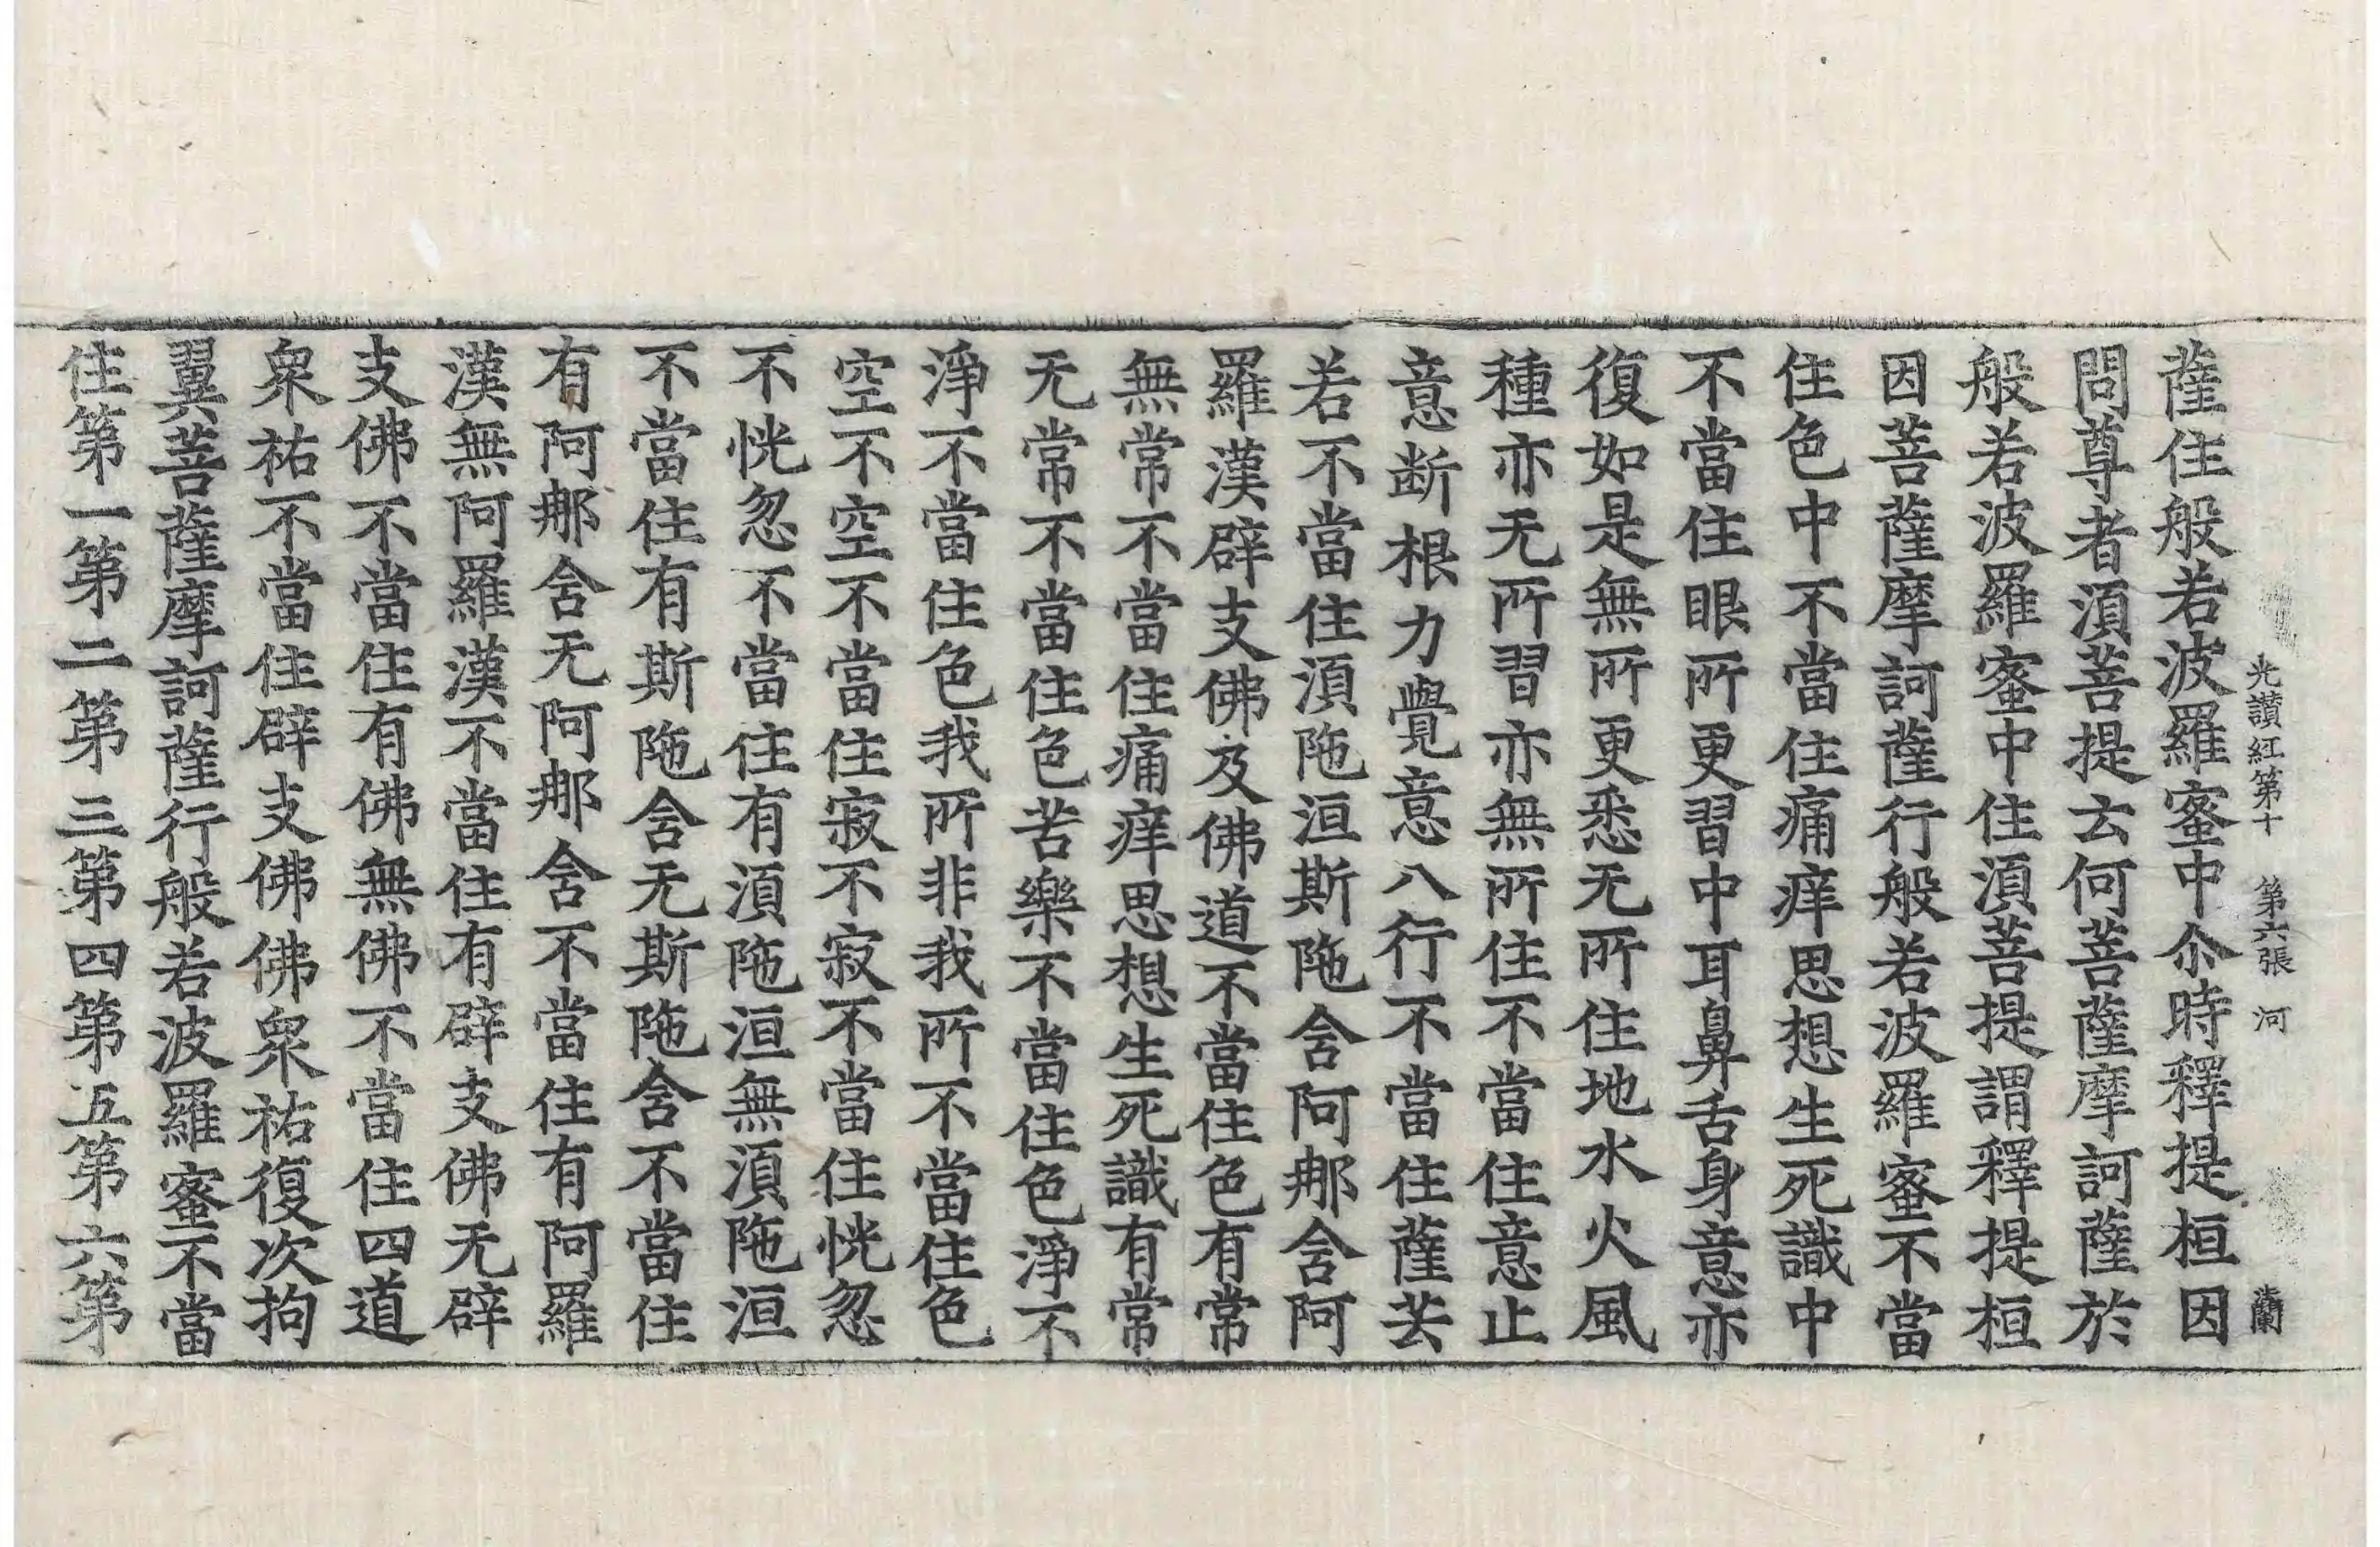 光讚経第十 第六張 河 蘭
薩住般若波羅蜜中尒時釋提桓因
問尊者湏菩提云何菩薩摩訶薩於
般若波羅蜜中住湏菩提謂釋提桓
因菩薩摩訶薩行般若波羅蜜不當
住色中不當住痛痒思想生死識中
不當住眼所更習中耳鼻舌身意亦
復如是無所更悉无所住地水火風
種亦无所習亦無所住不當住意止
意断根力覺意八行不當住薩芸
若不當住湏陁洹斯陁含阿那含阿
羅漢辟支佛及佛道不當住色有常
無常不當住痛痒思想生死識有常
无常不當住色苦樂不當住色淨不
淨不當住色我所非我所不當住色
空不空不當住寂不寂不當住恍忽
不恍忽不當住有湏陁洹無湏陁洹
不當住有斯陁含无斯陁含不當住
有阿那含无阿那含不當住有阿羅
漢無阿羅漢不當住有辟支佛无辟
支佛不當住有佛無佛不當住四道
衆祐不當住辟支佛佛衆祐復次拘
翼菩薩摩訶薩行般若波羅蜜不當
住第一第二第三第四第五第六第